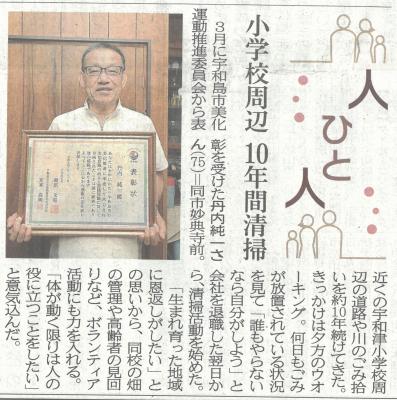 人
ひと
人
小学校周辺 10年間清掃
３月に宇和島市美化
運動推進委員会から表
彰を受けた丹内純一さ
ん(75)＝同市妙典寺前。
近くの宇和津小学校周
辺の道路や川のごみ拾
いを約10年続けてきた。
きっかけは夕方のウオ
ーキング。何日もごみ
が放置されている状況
を見て「誰もやらない
なら自分がしよう」と
会社を退職した翌日か
ら、清掃活動を始めた。
「生まれ育った地域
に恩返しがしたい」と
の思いから、同校の畑
の管理や高齢者の見回
りなど、ボランティア
活動にも力を入れる。
「体が動く限りは人の
役に立つことをしたい」
と意気込んだ。
表彰状